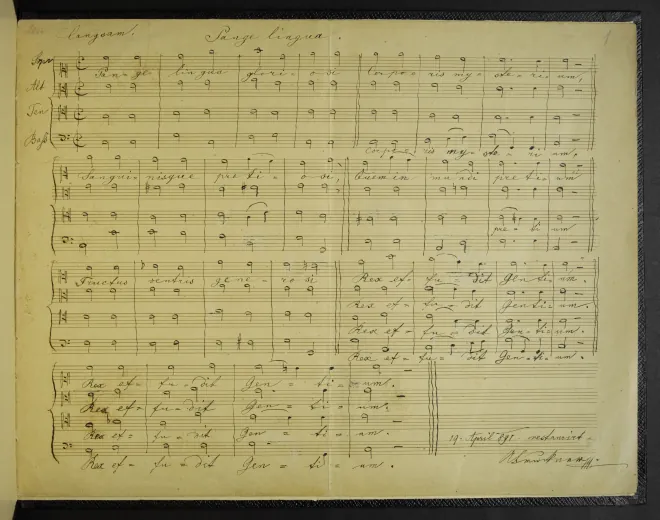 linguam. Pange lingua. 1
Sopr
Pan- ge lin- gua glori- o- si Corpo- ris my- ste- ri- um,
Alt
Ten
Bass
Corpo- ris my- ste- ri- um,
Sangui- nisque pre ti- o- si, Quem in mundi pre ti- um
pre- ti um
Fructus ventris gene- ro si Rex ef- fu- dit Gen ti- um.
Rex ef- fu- dit Gen ti- um.
Rex ef- fu- dit Gen- ti- um.
Rex ef- fu- dit Gen- ti- um.
Rex ef- fu- dit Gen- ti- um.
Rex ef- fu- dit Gen- ti- um.
Rex ef- fu- dit Gen- ti- um.
Rex ef- fu- dit Gen- ti- um.
19. April 891 restaurirt.